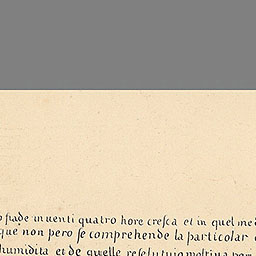 fiade in uenti quatro hore cresca et in quel
que non pero se comprehende la particolar
humidita et de quelle